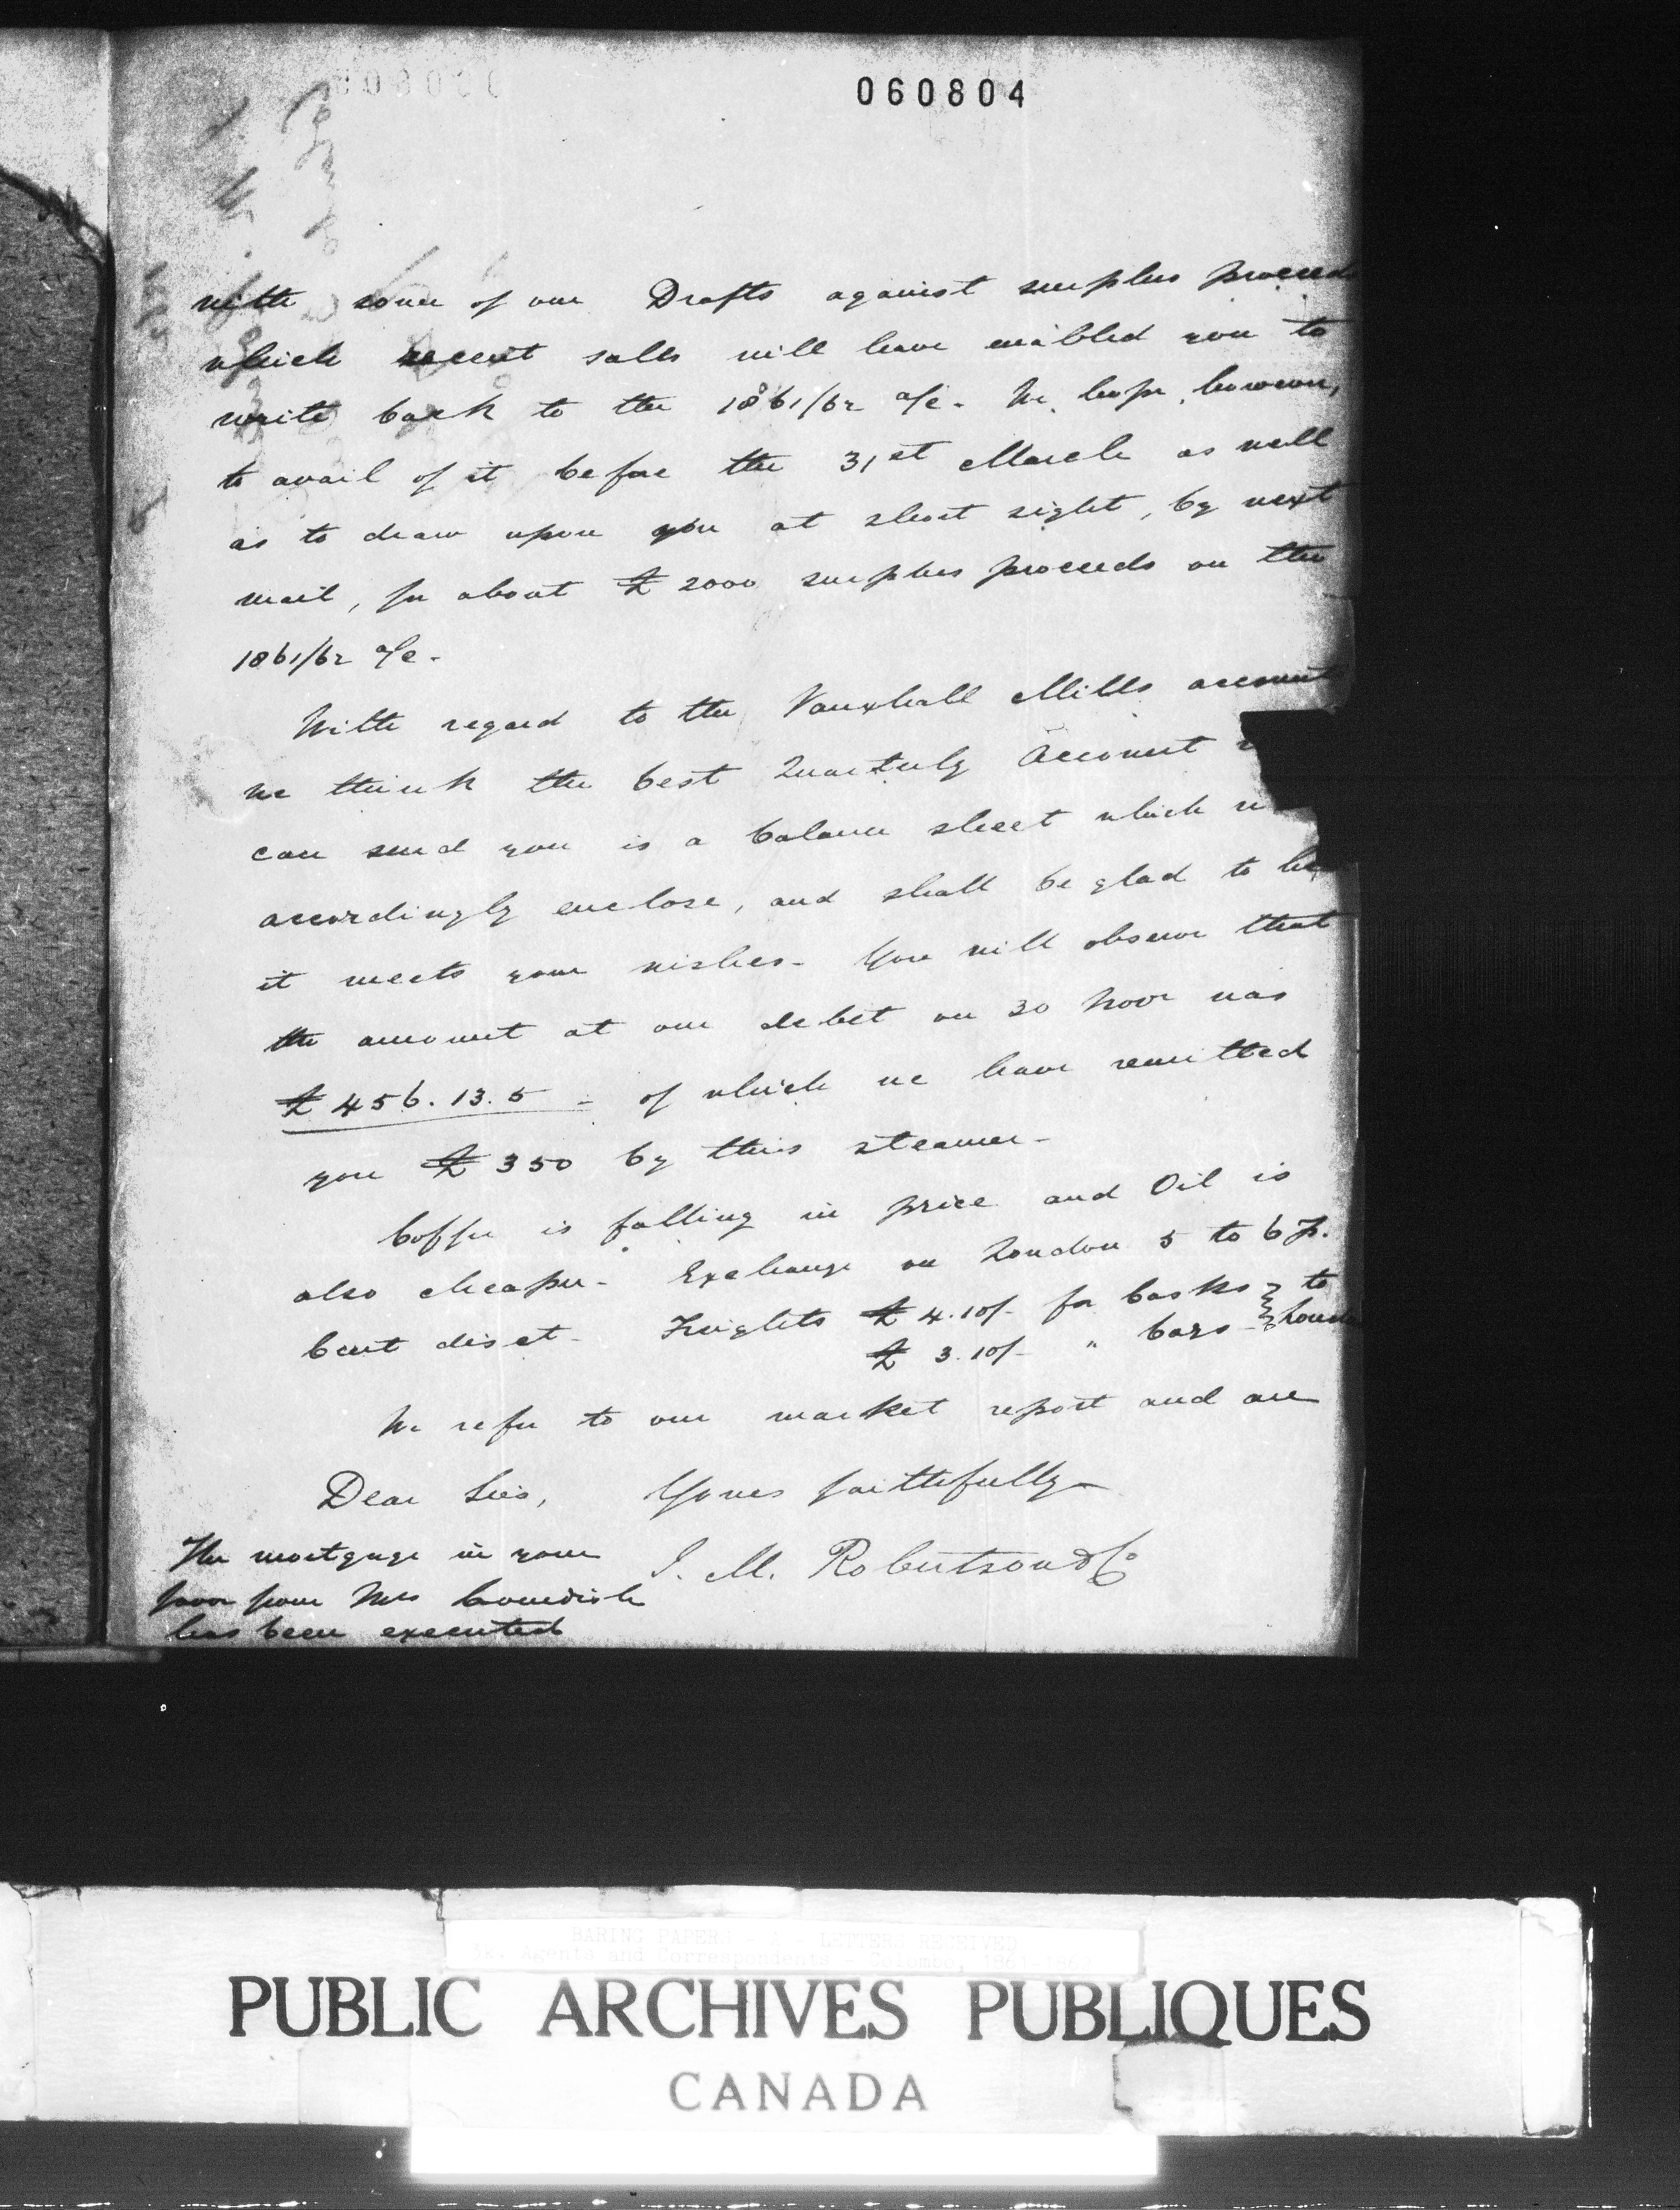 060804
with some of our Drafts against surplus proceeds
which recent sales will have enabled you to
write back to the 1861/62 a/c. We hope, however,
to avail of it before the 31st March as well
as to draw upon you at short sight, by next
mail, for about £2000 surplus proceeds on the
1861/62 a/c.
With regard to the Vauxhall Mills account
we think the best Quarterly Account
can send you is a balance sheet which
accordingly enclose, and shall be glad to
it meets your wishes. You will observe that
the amount at our debit on 30 Novr was
£456.13.5 - of which we have remitted
you £350 by this steamer.
Coffee is falling in price and Oil is
also cheaper. Exchange on London 5 to 6 p.
Cent disct. Freights £4.10/- for casks } to
£3.10/- " bags }
We refer to our market report and are
Dear Sirs, Yours faithfully
J. M. Robertson & Co
The mortgage in your
favor from Mrs
has been executed
BARING PAPERS - A LETTERS RECEIVED
Agents and Correspondents Colombo,
PUBLIC ARCHIVES PUBLIQUES
CANADA